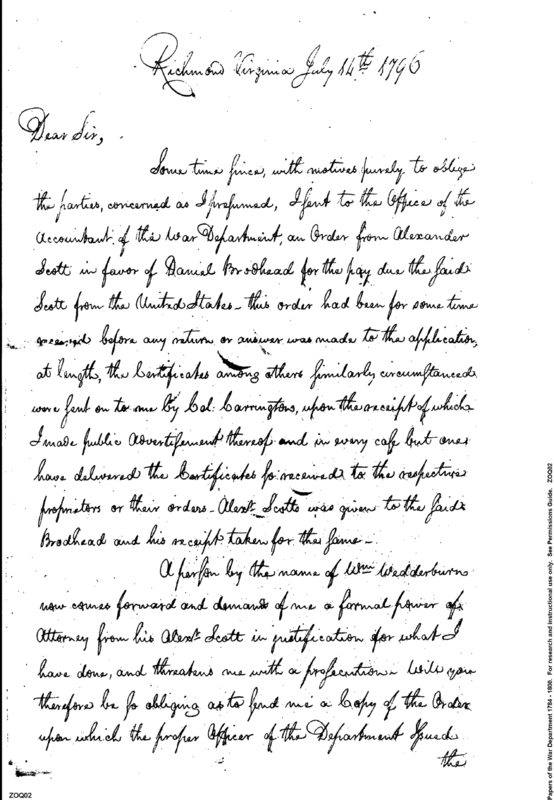 Richmond Virginia July 14th 1796
Dear Sir,
Some time since, with motives purely to oblige
the parties, concerned as I presumed, I sent to the Office of the
Accountant of the War Department, an Order from Alexander
Scott in favor of Daniel Brodhead for the pay due the said
Scott from the United States - this order had been for some time
received before any return or answer was made to the application,
at length, the Certificates among others similarly circumstanced
were sent on to me by Col: Carrington, upon the receipt of which
I made public Advertisement thereof and in every case but one
have delivered the Certificates so received to the respective
proprietors or their orders - Alexr. Scotts was given to the said
Brodhead and his receipt taken for the same -
A person by the name of Wm Wedderburn
now comes forward and demands of me a formal power of
Attorney from his Alexr. Scott in justification for what I
have done, and threatens me with a prosecution - Will you
therefore be so obliging as to send me a Copy of the Order
upon which the proper Officer of the Department Issued
the
ZOQ02
Papers of the War Department 1784 - 1800. For research and instructional use only. See Permissions Guide. ZOQ02